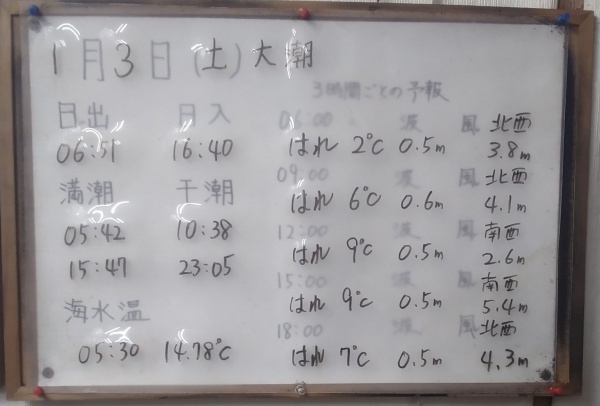 1月3日(土)大潮
3時間ごとの予報
日出 日入
06:51 16:40
満潮 干潮
05:42 10:38
15:47 23:05
海水温
05:30 14.78℃
06:00 波 風 北西
はれ 2℃ 0.5m 3.8m
09:00 波 風 北西
はれ 6℃ 0.6m 4.1m
12:00 波 風 南西
はれ 9℃ 0.5m 2.6m
15:00 波 風 南西
はれ 9℃ 0.5m 5.4m
18:00 波 風 北西
はれ 7℃ 0.5m 4.3m